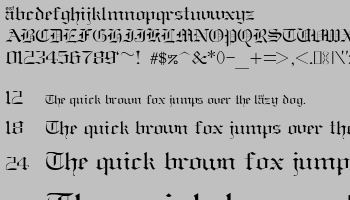 abcdefghijklmnopqrstuvwxyz
ABCDEFGHIJKLMNOPQRSTUVWX
0123456789
12 The quick brown fox jumps over the lazy dog.
18 The quick brown fox jumps over the
24 The quick brown fox jump